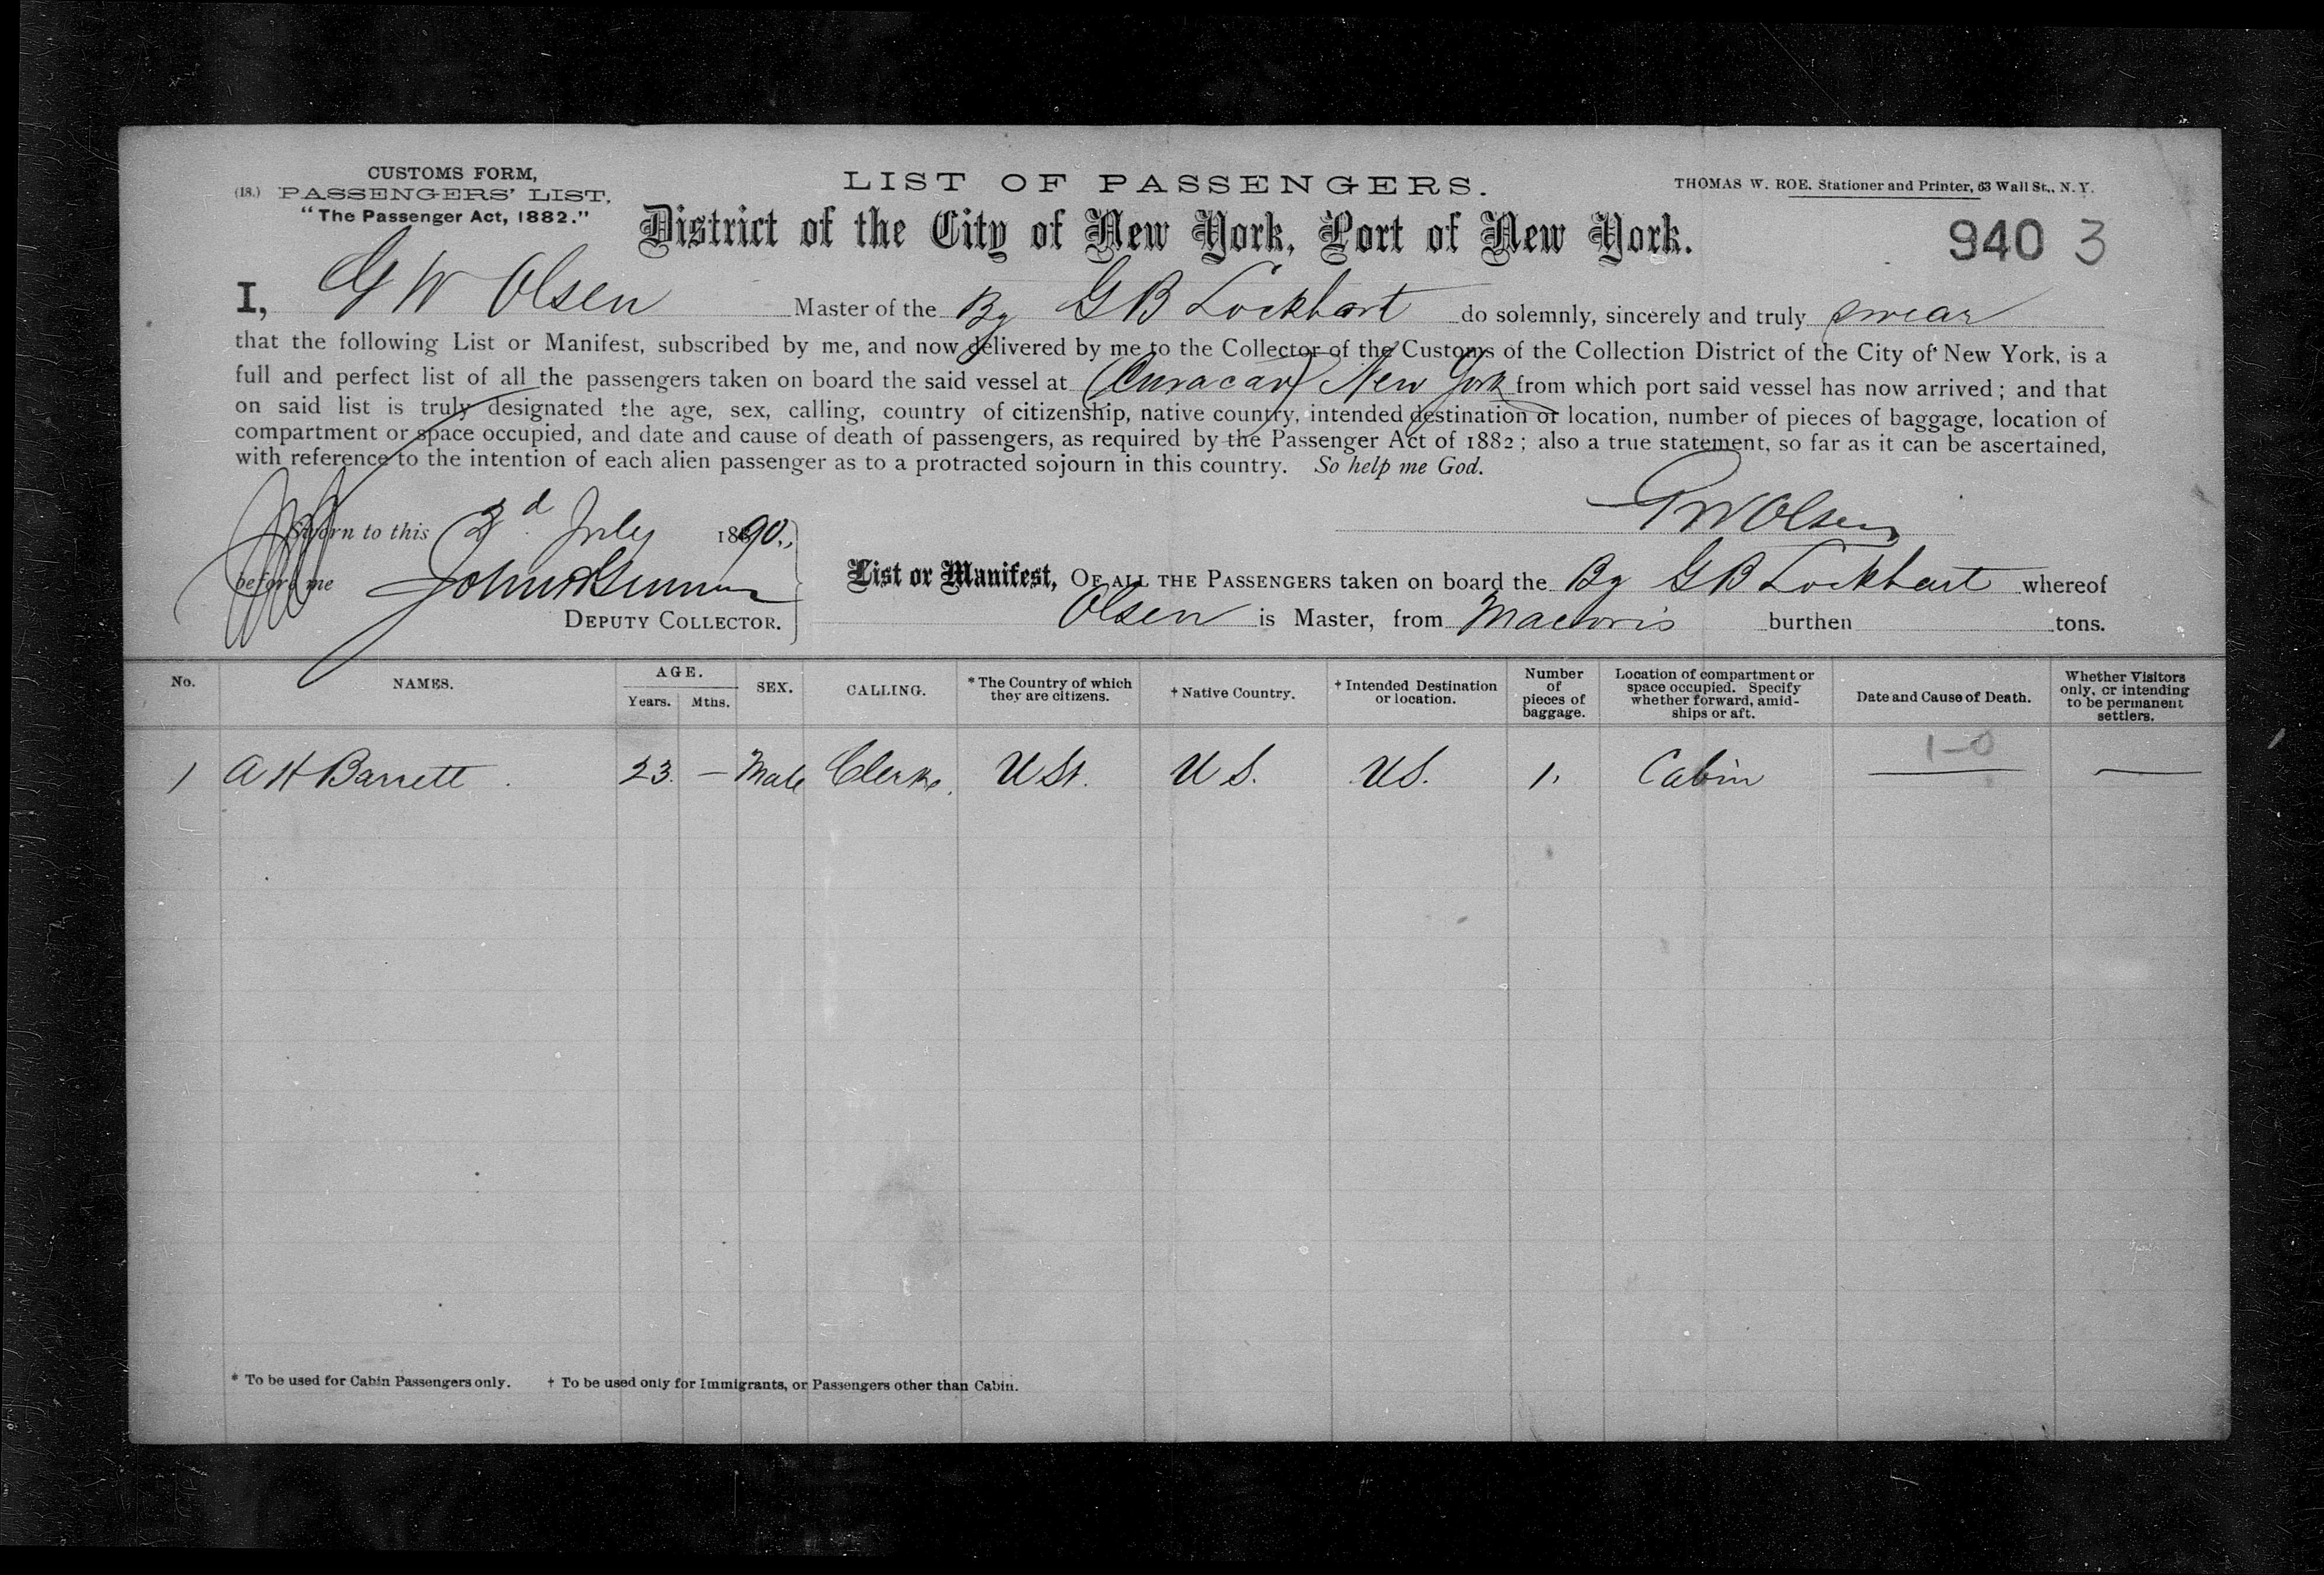 CUSTOMS FORM,
(18.) PASSENGERS' LIST,
"The Passenger Act, 1882."
LIST OF PASSENGERS.
THOMAS W. ROE. Stationer and Printer, 63 Wall St., N. Y.
District of the City of New York, Port of New York.
940 3
I, G W Olsen Master of the Bg G B Lockhart do solemnly, sincerely and truly swear
that the following List or Manifest, subscribed by me, and now delivered by me to the Collector of the Customs of the Collection District of the City of New York, is a
full and perfect list of all the passengers taken on board the said vessel at (Curacao) New York from which port said vessel has now arrived; and that
on said list is truly designated the age, sex, calling, country of citizenship, native country, intended destination or location, number of pieces of baggage, location of
compartment or space occupied, and date and cause of death of passengers, as required by the Passenger Act of 1882; also a true statement, so far as it can be ascertained,
with reference to the intention of each alien passenger as to a protracted sojourn in this country. So help me God.
Sworn to this 2d July 1890.
G W Olsen
before me John
DEPUTY COLLECTOR.
List or Manifest, OF ALL THE PASSENGERS taken on board the Bg G B Lockhart whereof
Olsen is Master, from Macoris burthen tons.
No. NAMES. AGE. Years. Mths. SEX. CALLING. * The Country of which they are citizens. † Native Country. † Intended Destination or location. Number of pieces of baggage. Location of compartment or space occupied. Specify whether forward, amid-ships or aft. Date and Cause of Death. Whether Visitors only, or intending to be permanent settlers.
1-0
1 A H Barrett. 23. — Male Clerk. U St. U S. U S. 1. Cabin — —
* To be used for Cabin Passengers only. † To be used only for Immigrants, or Passengers other than Cabin.